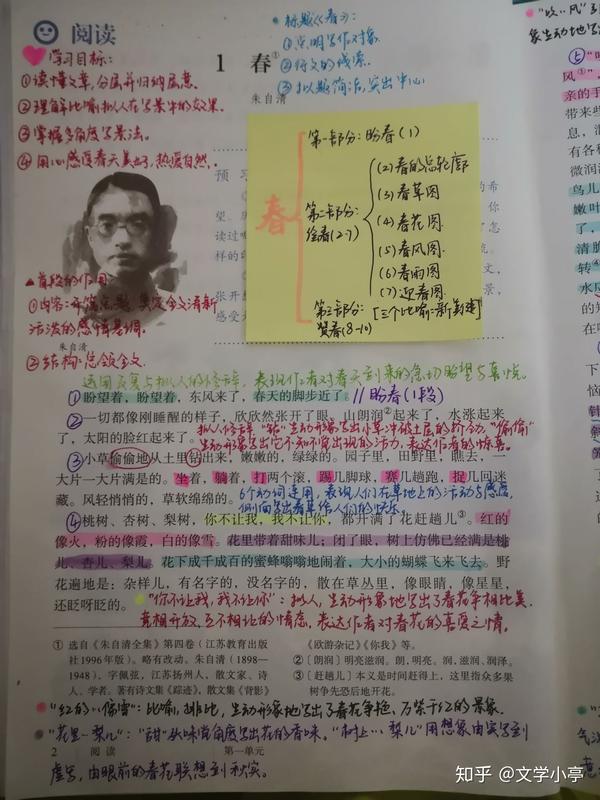 阅读
学习目标:
①读懂文章,分层并归纳层意.
②理解比喻拟人在写景中的效果.
③掌握多角度写景法.
④用心感受春天美好,热爱自然.
标题《春》:
①点明写作对象
②行文的线索
③拟题简洁,突出中心
1 春①
朱自清
预习
春
第一部分:盼春(1)
第二部分:
绘春(2-7)
(2)春的总轮廓
(3)春草图
(4)春花图
(5)春风图
(6)春雨图
(7)迎春图
第三部分:[三个比喻:新美健]
赞春(8-10)
▲首段的作用
①内容:开篇点题,奠定全文清新
活泼的感情基调.
朱自清
②结构:总领全文
运用反复与拟人的修辞,表现作者对春天到来的急切盼望与喜悦.
①盼望着,盼望着,东风来了,春天的脚步近了。//盼春(1段)
②一切都像刚睡醒的样子,欣欣然张开了眼。山朗润②起来了,水涨起来
了,太阳的脸红起来了。
拟人修辞 "钻"生动形象写出小草冲破土层的挤劲,"偷偷"
生动形象写出它不知不觉出现的活力,表达作者的惊喜.
③小草偷偷地从土里钻出来,嫩嫩的,绿绿的。园子里,田野里,瞧去,一
大片一大片满是的。坐着,躺着,打两个滚,踢几脚球,赛几趟跑,捉几回迷
藏。风轻悄悄的,草软绵绵的。
6个动词连用,表现人们在草地上的活动与感受,
侧面写出春草给人们的快乐.
④桃树、杏树、梨树,你不让我,我不让你,都开满了花赶趟儿③。红的
像火,粉的像霞,白的像雪。花里带着甜味儿;闭了眼,树上仿佛已经满是桃
儿、杏儿、梨儿。花下成千成百的蜜蜂嗡嗡地闹着,大小的蝴蝶飞来飞去。野
花遍地是:杂样儿,有名字的,没名字的,散在草丛里,像眼睛,像星星,
还眨呀眨的。
"你不让我,我不让你":拟人,生动形象地写出了春花争相比美.
竞相开放,互不相让的情态,表达作者对春花的喜爱之情.
① 选自《朱自清全集》第四卷(江苏教育出版
社1996年版)。略有改动。朱自清(1898—
1948),字佩弦,江苏扬州人,散文家、诗
人、学者。著有诗文集《踪迹》,散文集《背影》
《欧游杂记》《你我》等。
② 〔朗润〕明亮滋润。朗,明亮。润,滋润、润泽。
③ 〔赶趟儿〕本义是时间赶得上,这里指众多果
树争先恐后地开花。
"红的…像雪":比喻,排比,生动形象地写出了春花争艳,万紫千红的景象.
"花里~梨儿":"甜"从味觉角度写出花的香味。"树上…梨儿"用想象由实写到
2 阅读 第一单元
虚写,由眼前的春花联想到秋实.
知乎 @文学小亭